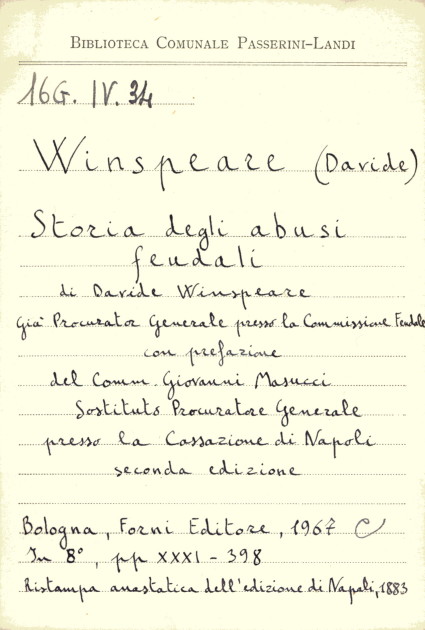 BIBLIOTECA COMUNALE PASSERINI-LANDI
16G. IV. 34
Winspeare (Davide)
Storia degli abusi
feudali
di Davide Winspeare
Già Procurator Generale presso la Commissione Feudale
con prefazione
del Comm. Giovanni Masucci
Sostituto Procuratore Generale
presso la Cassazione di Napoli
seconda edizione
Bologna, Forni Editore, 1967 C
In 8°, pp XXXI - 398
Ristampa anastatica dell'edizione di Napoli, 1883